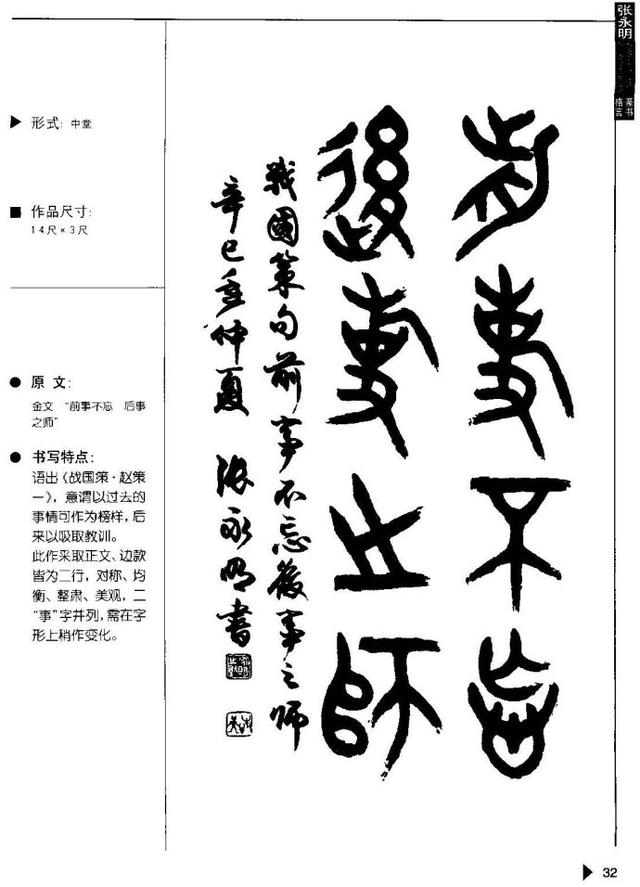 张永明
篆书
格言
形式：中堂
作品尺寸：
14尺×3尺
原 文：
金文 “前事不忘 后事
之师”
书写特点：
语出《战国策·赵策
一》，意谓以过去的
事情可作为榜样，后
来以吸取教训。
此作采取正文、边款
皆为二行，对称、均
衡、整肃、美观，二
“事”字并列，需在字
形上稍作变化。
前事不忘
後事之師
戰國策句前事不忘後事之师
辛巳年仲夏 张永明書
32